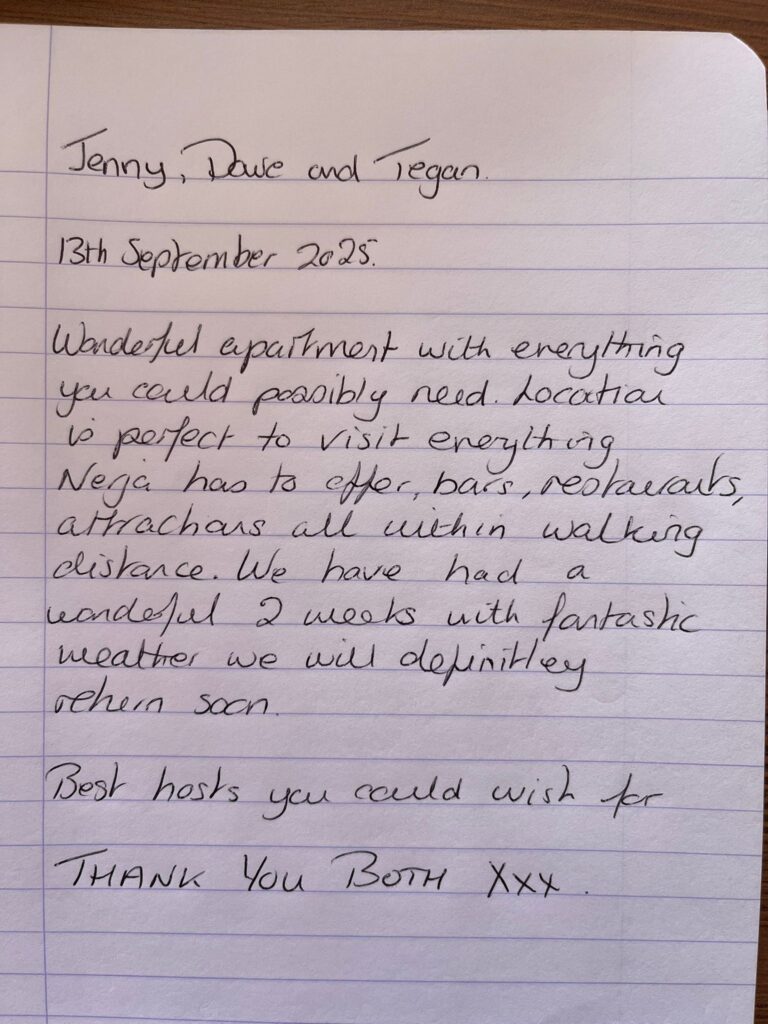 Jenny, Dave and Tegan.
13th September 2025.
Wonderful apartment with everything
you could possibly need. Location
is perfect to visit everything
Nerja has to offer, bars, restaurants,
attractions all within walking
distance. We have had a
wondeful 2 weeks with fantastic
weather we will definitley
return soon.
Best hosts you could wish for
THANK YOU BOTH XXX.